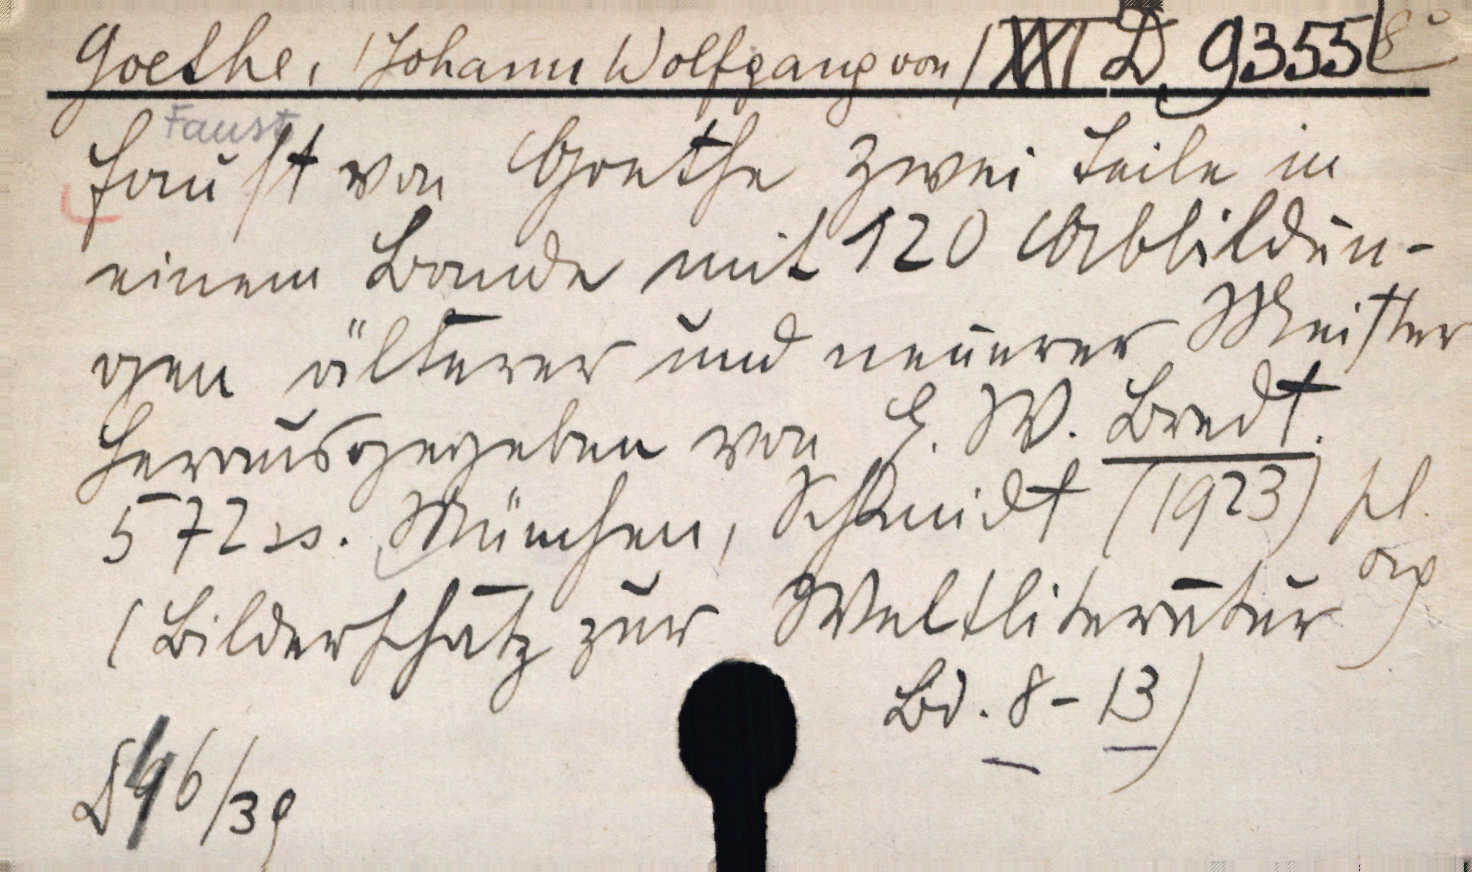 Goethe, (Johann Wolfgang von) XXI D 9355
Faust
Faust von Goethe zwei Teile in
einem Bande mit 120 Abbildun-
gen älterer und neuerer Meister
herausgegeben von E. W. Bredt.
572 ss. München, Schmidt (1923) pl.
(Bilderschatz zur Weltliteratur
Bd. 8-13)
46/39